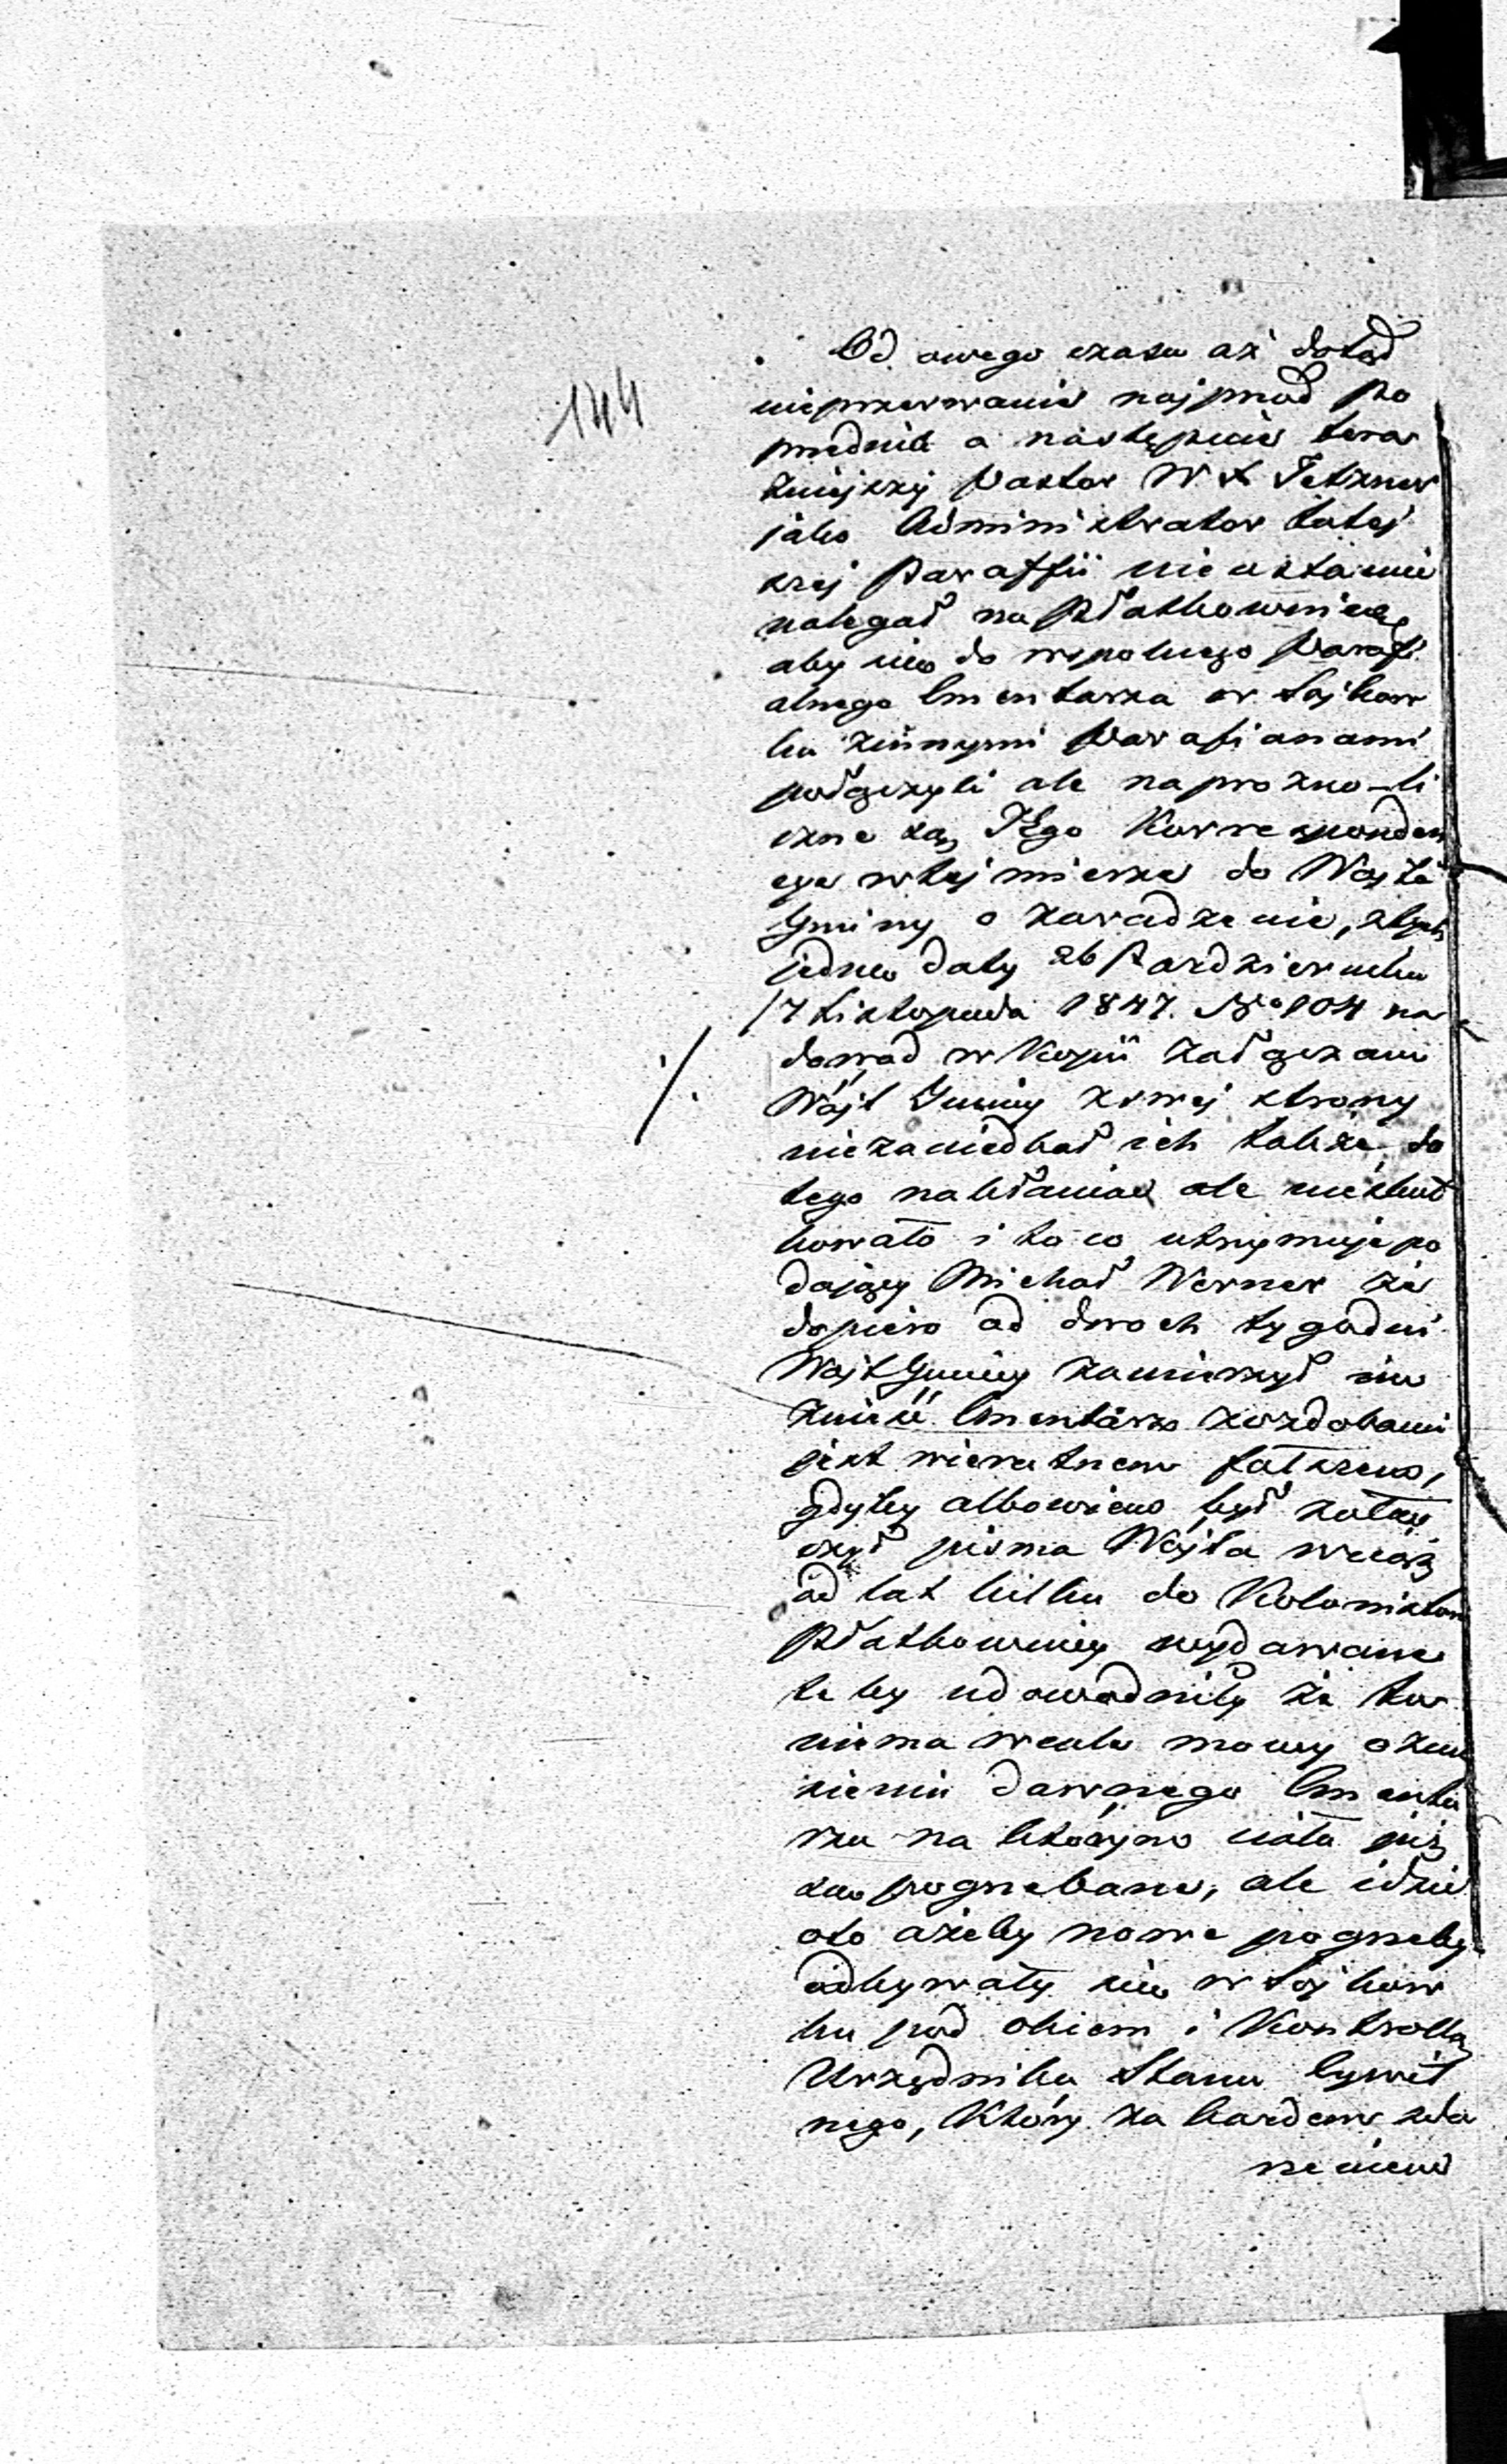 144
Od owego czasu aż dotąd
nieprzerwanie najprzód po
przednik a następnie teraz
źniejszy Pastor W X Tetzner
jako Administrator tutej
szej Paraffii nieustannie
nalegał na
aby się do wspolnego Parafi
alnego Cmentarza w Łaj kow
ku zinnymi Parafianami
połączyli ale naprozno – li
czne są Jego Korresponden
cye wtej mierze do Wojta
Gminy o zaradzenie, z tych
jedne daty 26 Pazdziernika
/7 Listopada 1847. No 104 na
dowód w Kopii załączam
Wójt Gminy zswej strony
niezaniedbał ich także do
tego nakłaniać ale nieskut
kowało i to co utrzymuje po
dający Michał Werner że
dopiero od dwoch tygodni
Wójt Gminy zamierzył im
znieść Cmentarz zozdobami
jest wierutnem fałszem,
gdyby albowiem był załą
czył pisma Wójta wciąż
od lat kilku do Kolonistow
wydawane
te by udowodniły że tu
niema wcale mowy ozni
sieniu dawnego Cmenta
rza na którym ciała już
są pogrzebane, ale idzie
oto ażeby nowe pogrzeby
odbywały się w Łaj kow
ku pod okiem i Kontrollą
Urzędnika Stanu Cywil
nego, Który za każdem zda
rzeniem